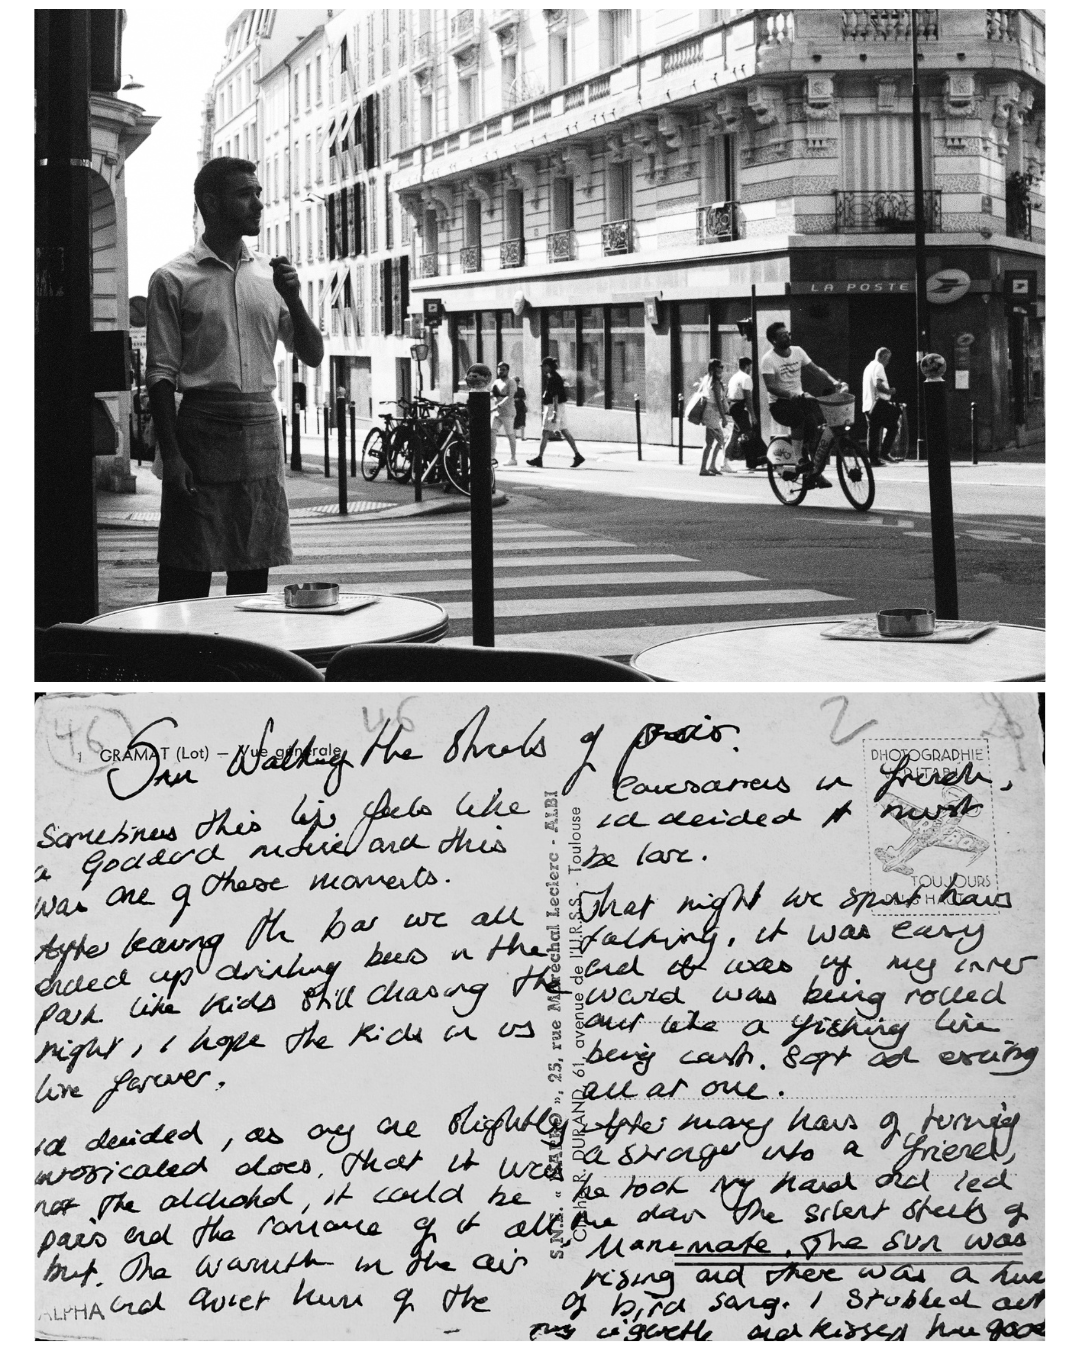 LA POSTE
46
46
2
1 GRAMAT (Lot) — Vue générale
Walking the streets of paris.
PHOTOGRAPHIE
VÉRITABLE
TOUJOURS
PLUS HAUT
S.N.E. « », 25, rue Maréchal Leclerc - ALBI
R. DURAND, 61, avenue de l'U.R.S.S. - Toulouse
ALPHA
Sometimes this life feels like
a Goddard movie and this
was one of those moments.
After leaving the bar we all
ended up drinking beers in the
park like kids still chasing the
night, I hope the kids in us
live forever.
id decided, as any one slightly
intoxicated does, that it was
not the alchohol, it could be
paris and the romance of it all
but. The warmth in the air
and quiet hum of the
in french,
id decided it must
be love.
That night we spent hours
talking, it was easy
and it was if my inner
world was being rolled
out like a fishing line
being cast. Soft and exciting
all at once.
After many hours of turning
a stranger into a friend,
he took my hand and led
me down the silent streets of
Montmatre. The sun was
rising and there was a hum
of bird song. I stubbed out
my cigarette and kissed him good